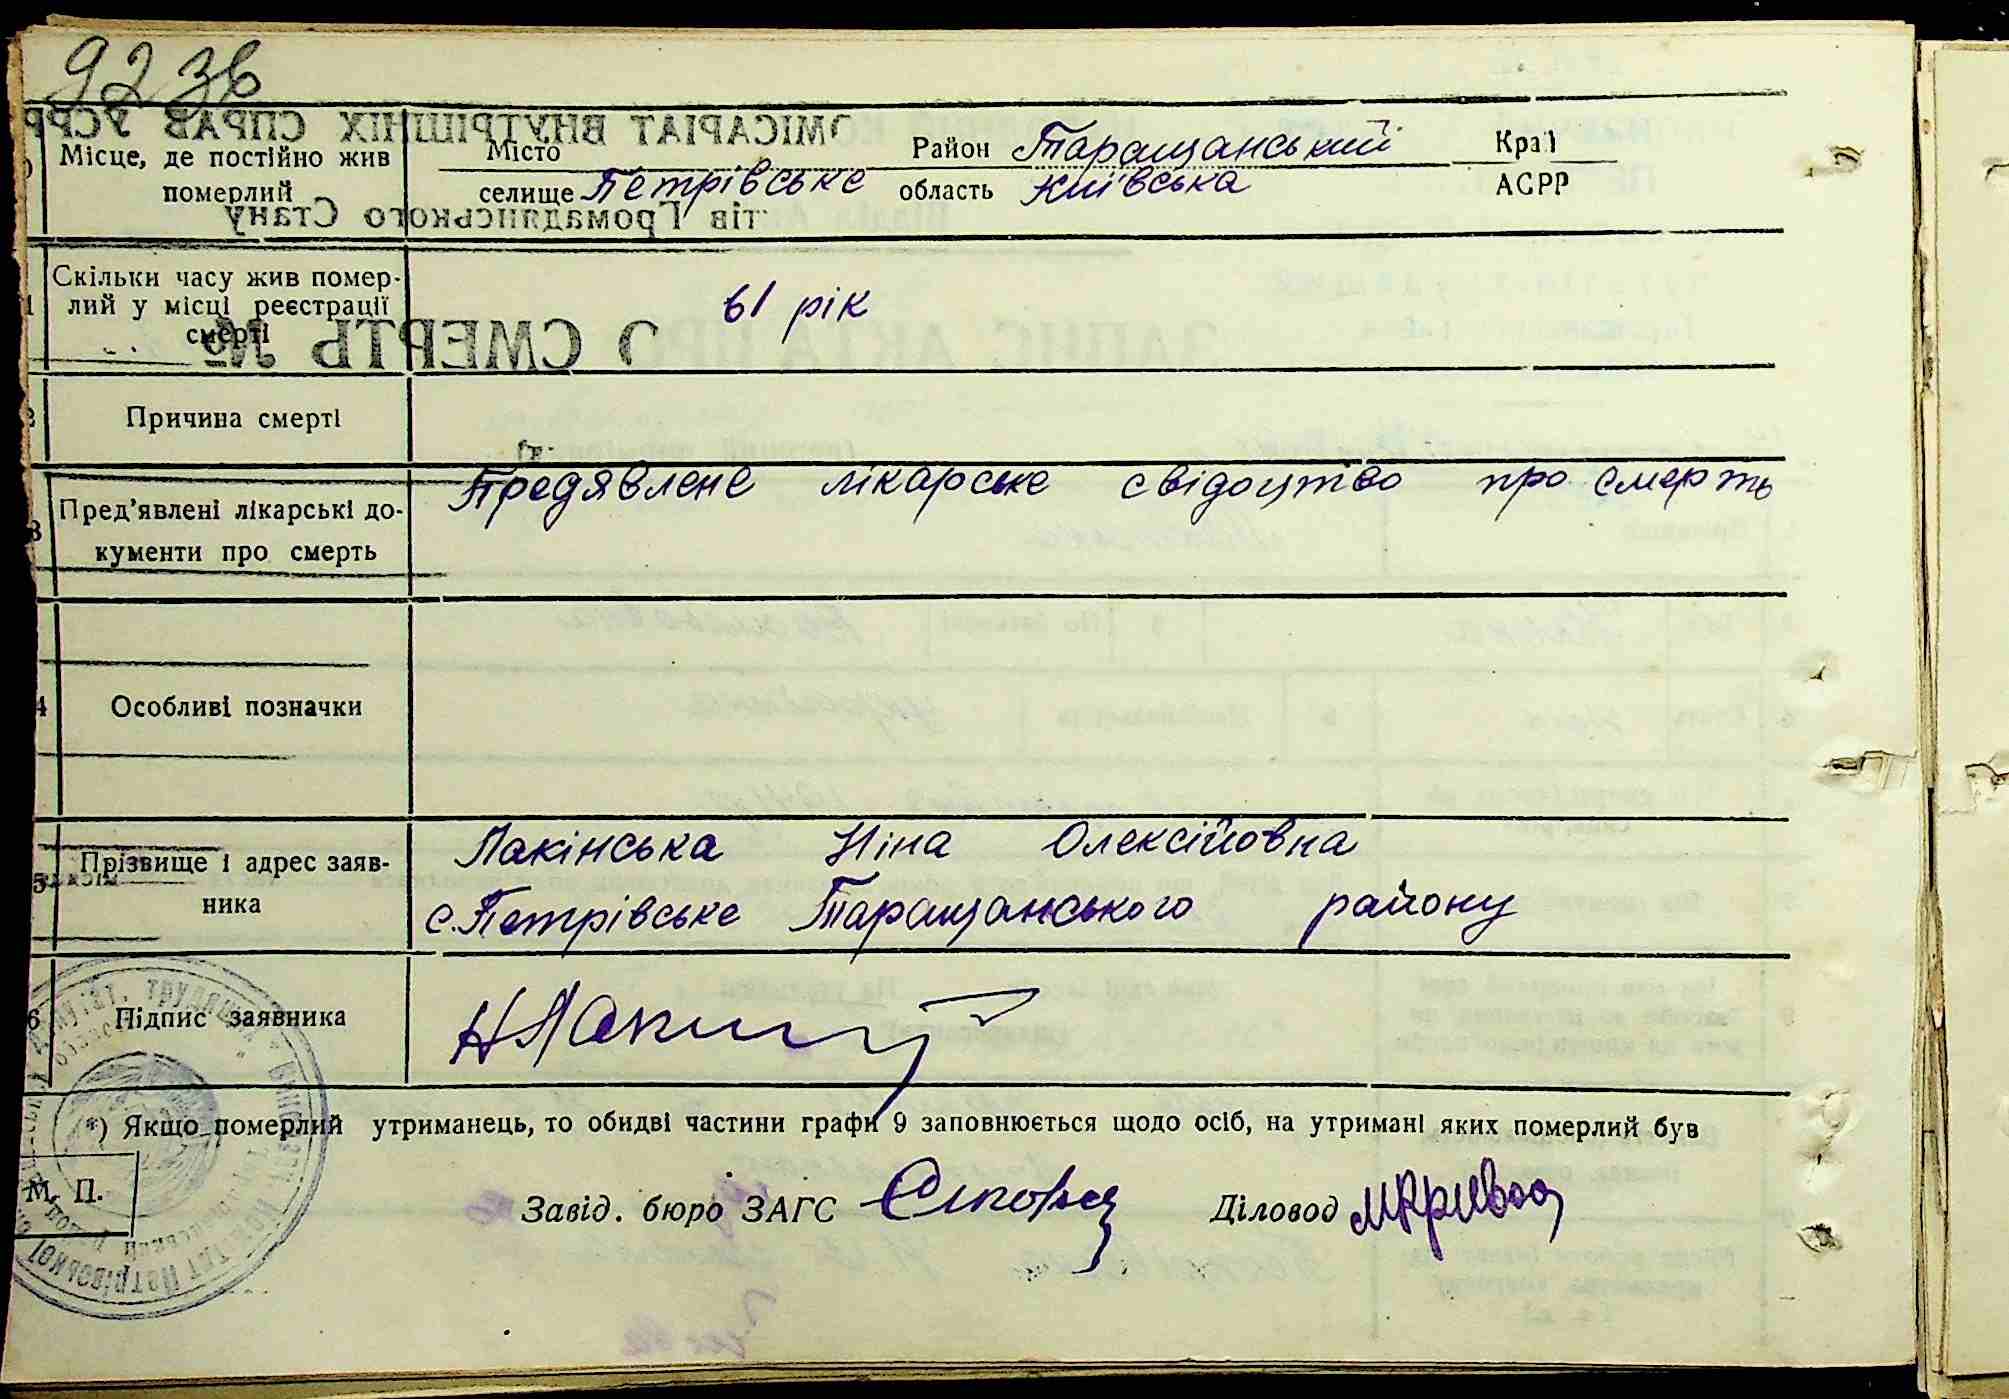 92 зв
Місце, де постійно жив померлий
Місто Район Таращанський Край
селище Петрівське область Київська АСРР
Скільки часу жив помер-
лий у місці реєстрації
смерті
61 рік
Причина смерті
Пред'явлені лікарські до-
кументи про смерть
Предявлене лікарське свідоцтво про смерть
Особливі позначки
Прізвище і адрес заяв-
ника
Лакінська Ніна Олексійовна
с. Петрівське Таращанського району
Підпис заявника
*) Якщо померлий утриманець, то обидві частини графи 9 заповнюється щодо осіб, на утримані яких померлий був
М. П.
Завід. бюро ЗАГС Діловод